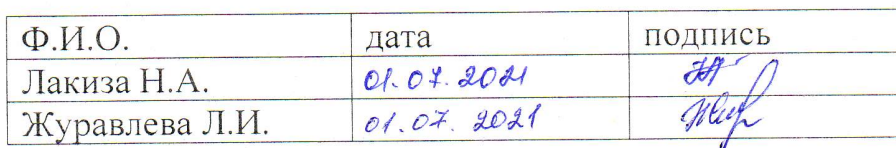 Ф.И.О. дата подпись
Лакиза Н.А. 01.07.2021
Журавлева Л.И. 01.07.2021